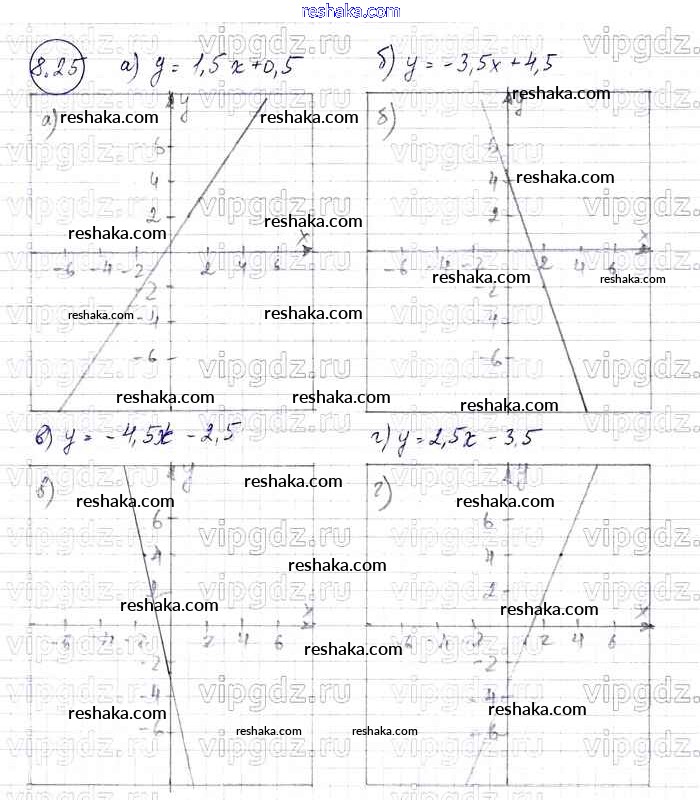 reshaka.com
8.25 а) y = 1,5x+0,5 б) y = -3,5x+4,5
а) y б) y
reshaka.com reshaka.com reshaka.com
6 6
4 4 reshaka.com
2 2
reshaka.com reshaka.com x x
-6 -4 -2 2 4 6 -6 -4 -2 2 4 6
reshaka.com reshaka.com
-2 -2
reshaka.com reshaka.com
-4 -4
-6 -6
reshaka.com reshaka.com reshaka.com
в) y = -4,5x - 2,5 г) y = 2,5x - 3,5
в) y г) y
reshaka.com reshaka.com reshaka.com
6 6
4 4
reshaka.com
2 2
reshaka.com x reshaka.com x
-6 -4 -2 2 4 6 -6 -4 -2 2 4 6
reshaka.com
-2 -2
-4 -4
reshaka.com reshaka.com
-6 -6
reshaka.com reshaka.com
vipgdz.ru